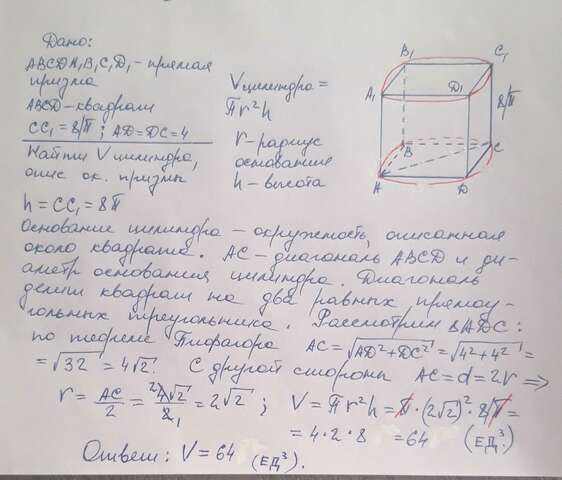 Дано:
ABCDA₁B₁C₁D₁ - прямая
призма
ABCD - квадрат
CC₁ = 8/π ; AD = DC = 4
Найти V цилиндра,
опис. ок. призмы
V цилиндра =
πr²h
r - радиус
основание
h - высота
B₁ C₁
A₁ D₁ 8/π
B C
A D
h = CC₁ = 8/π
Основание цилиндра - окружность, описанная
около квадрата. AC - диагональ ABCD и ди-
аметр основания цилиндра. Диагональ
делит квадрат на два равных прямоу-
гольных треугольника. Рассмотрим △ADC:
по теореме Пифагора AC = √AD² + DC² = √4² + 4² =
= √32 = 4√2. С другой стороны AC = d = 2r ⇒
r = AC/2 = ²4√2/2₁ = 2√2 ; V = πr²h = π · (2√2)² · 8/π =
= 4 · 2 · 8 = 64 (ЕД³.)
Ответ: V = 64 (ЕД³).